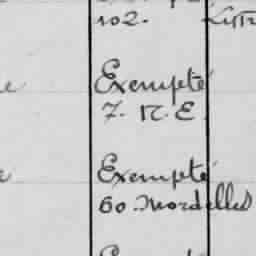 102.
Exempté
7. R. E
Exempté
60. Mordelles